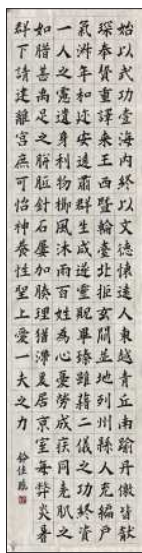 始以武功壹海內終以文德懷遠人東越青丘南踰丹徼皆獻
琛奉贄重譯來王西暨輪臺北拒玄闕並地列州縣人充編戶
氣淑年和迩安遠肅群生咸遂靈貺畢臻雖藉二儀之功終資
一人之慮遺身利物櫛風沐雨百姓為心憂勞成疾同堯肌之
如腊甚禹足之胼胝針石屢加腠理猶滯爰居京室每弊炎暑
群下請建離宮庶可怡神養性聖上愛一夫之力